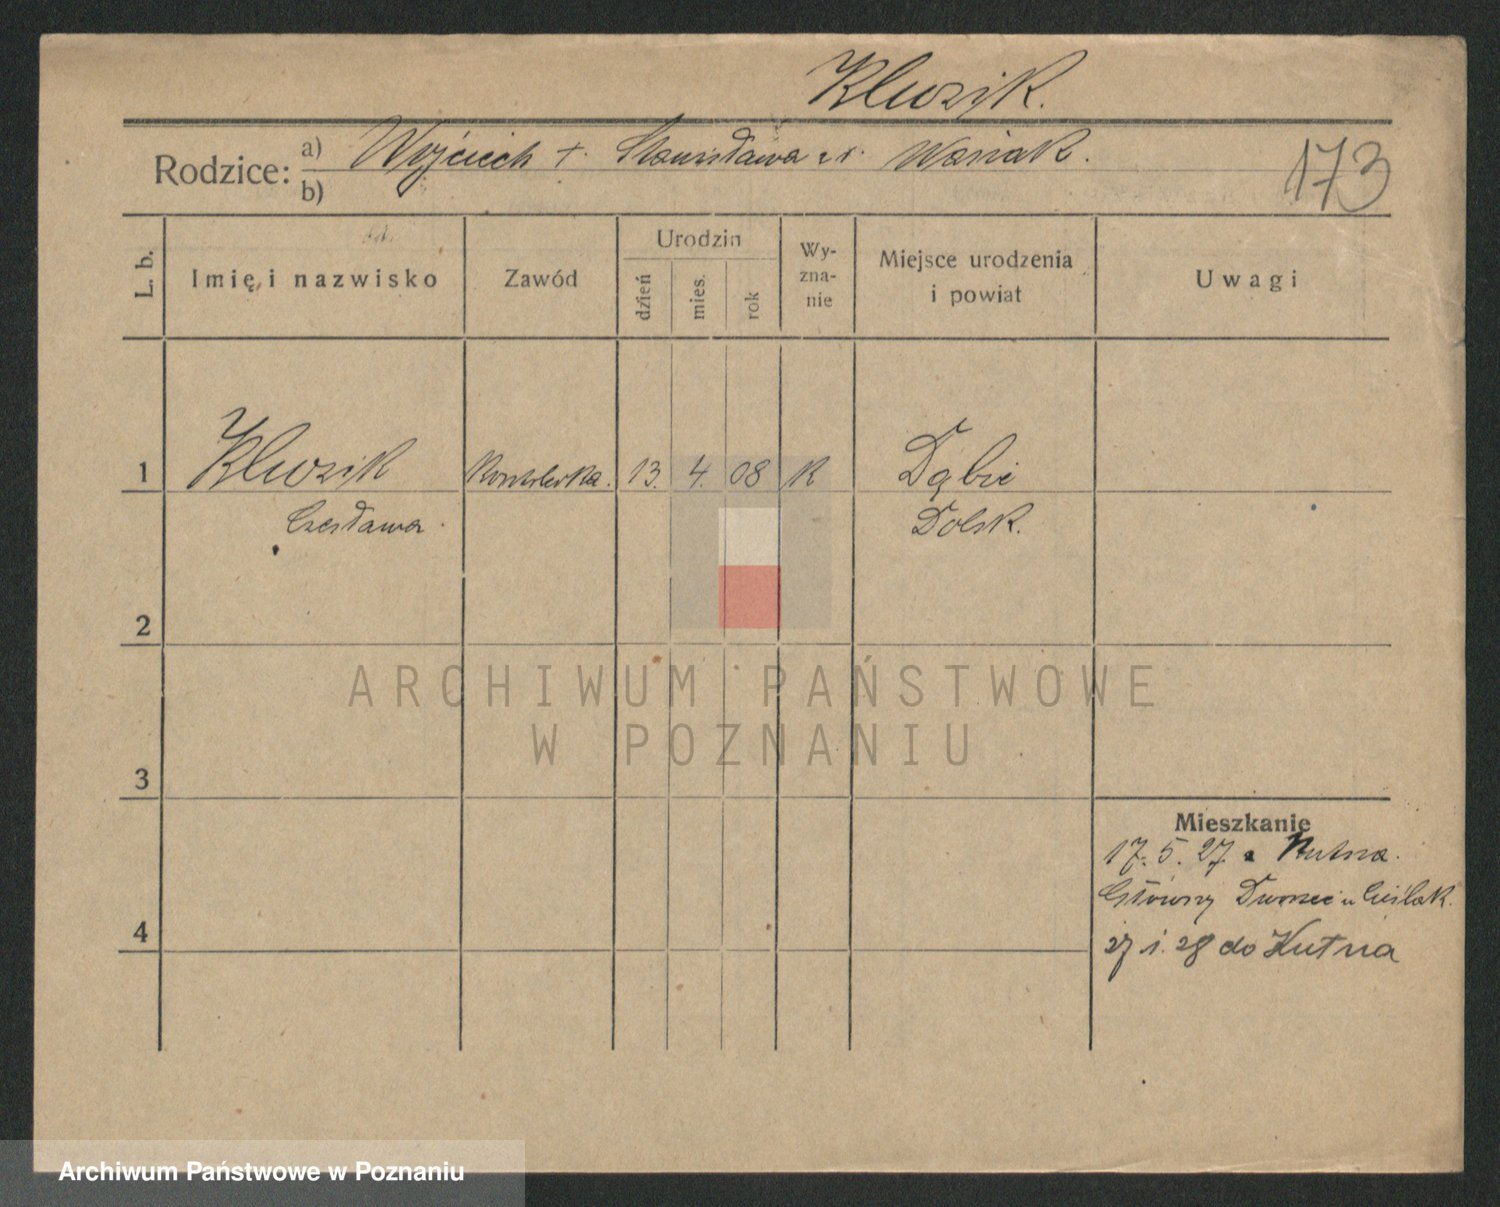 Kluzik.
Rodzice: a) Wojciech +. Stanisława z d. Wasiak.
b)
173
L. b.
Imię i nazwisko
Zawód
Urodzin
dzień
mies.
rok
Wy-
zna-
nie
Miejsce urodzenia
i powiat
Uwagi
1 Kluzik 13. 4. 08 K Dąbie
Czesława Dolsk.
2
3
4
Mieszkanie
17. 5. 27 z Kutna.
Główny Dworzec u Cieślak.
27 1. 28 do Kutna
ARCHIWUM PAŃSTWOWE
W POZNANIU
Archiwum Państwowe w Poznaniu